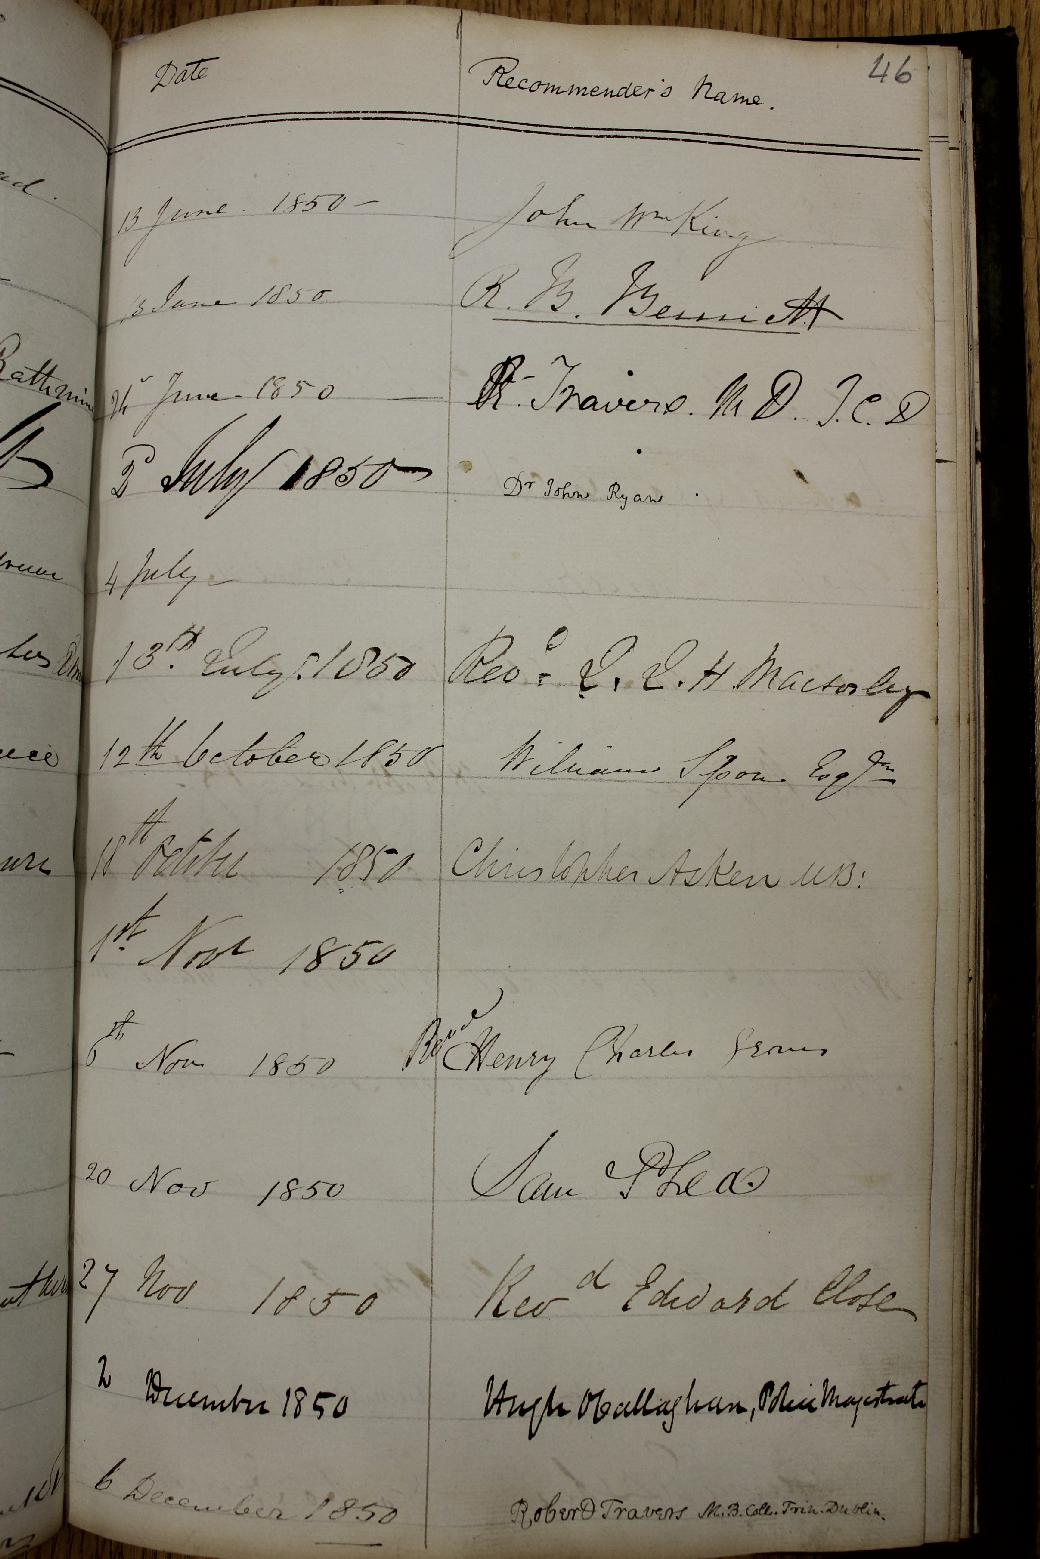 46
Date Recommender's Name.
13 June 1850 - John Wm King
13 June 1850 R. B. Bennett
June 1850 R. Travers. M D. T. C. D
2d July 1850 Dr John Ryan
4 July
13th July. 1850 Revd. J. J. H Macsorley
12th October 1850 William Spon Esq
18th October 1850 Christopher Asken MB:
1st Novr 1850
6th Nov 1850 Revd Henry Charles
20 Nov 1850 Sam P Lea
27 Nov 1850 Revd Edward Close
2 December 1850 Hugh OCallaghan, Police Magistrate
6 December 1850 Robert Travers M.B. Coll. Trin. Dublin.